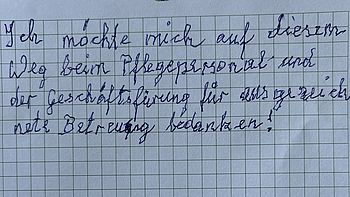 Ich möchte mich auf diesem
Weg beim Pflegepersonal und
der Geschäftsfürung für ausgezeich
nete Betreung bedanken!